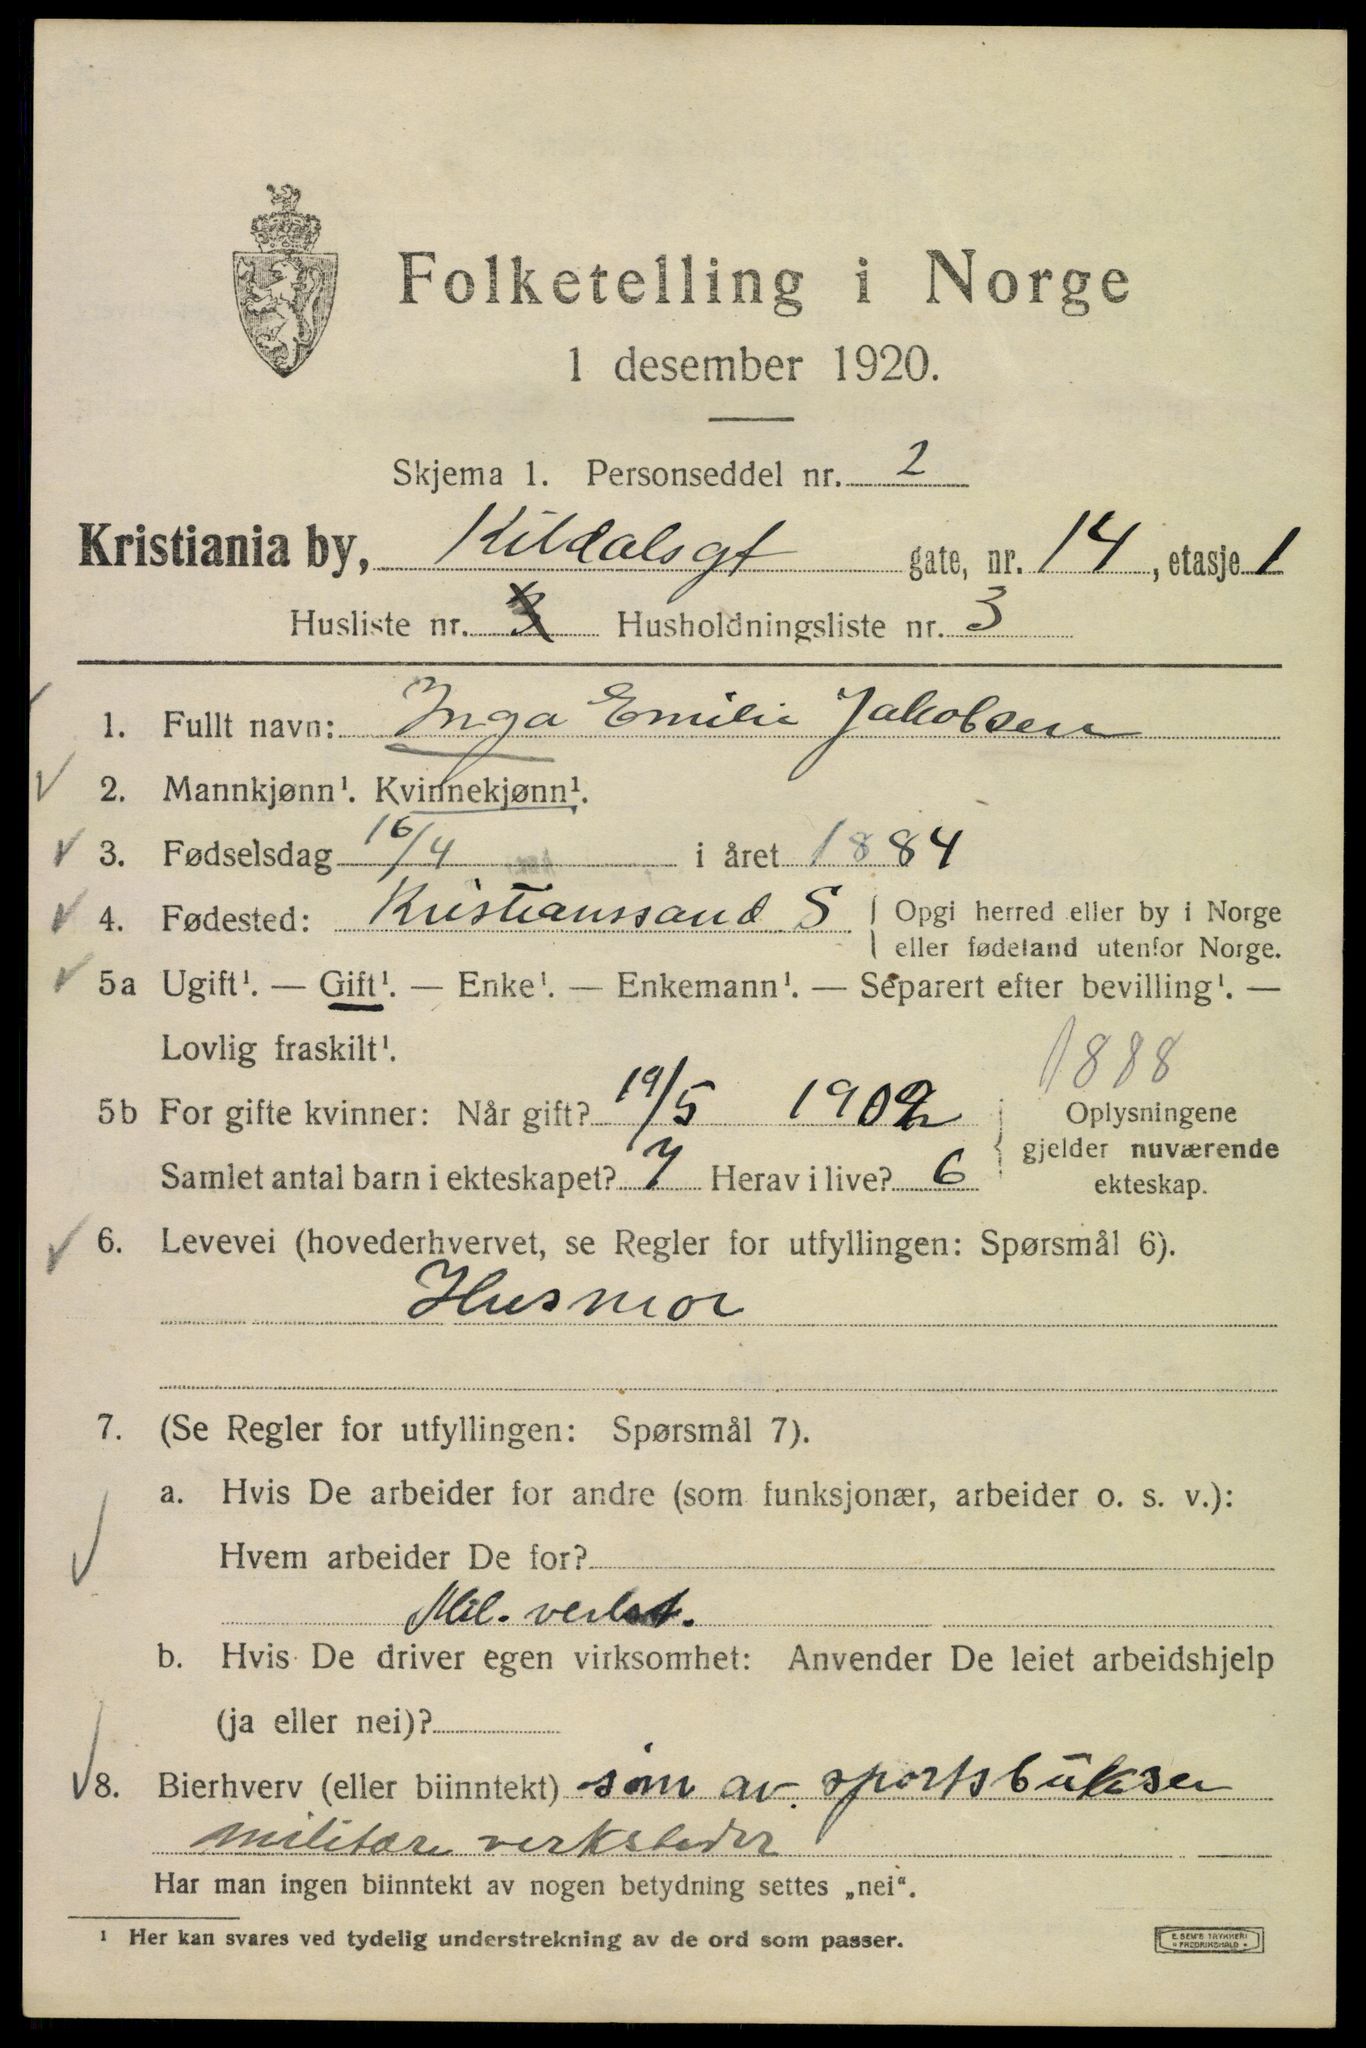 Folketelling i Norge
1 desember 1920.
Skjema 1. Personseddel nr. 2
Kristiania by, Kildalsgt gate, nr. 14, etasje 1
Husliste nr. 3 Husholdningsliste nr. 3
1. Fullt navn: Inga Emilie Jakobsen
2. Mannkjønn¹. Kvinnekjønn¹.
3. Fødselsdag 16/4 i året 1884
4. Fødested: Kristianssand S { Opgi herred eller by i Norge
eller fødeland utenfor Norge.
5a Ugift¹. — Gift¹. — Enke¹. — Enkemann¹. — Separert efter bevilling¹. —
Lovlig fraskilt¹.
1888
5b For gifte kvinner: Når gift? 19/5 1902 Oplysningene
gjelder nuværende
Samlet antal barn i ekteskapet? 7 Herav i live? 6 ekteskap.
6. Levevei (hovederhvervet, se Regler for utfyllingen: Spørsmål 6).
Husmor
7. (Se Regler for utfyllingen: Spørsmål 7).
a. Hvis De arbeider for andre (som funksjonær, arbeider o. s. v.):
Hvem arbeider De for?
Mil.
b. Hvis De driver egen virksomhet: Anvender De leiet arbeidshjelp
(ja eller nei)?
8. Bierhverv (eller biinntekt) søm av sportsbukser
militære verksteder
Har man ingen biinntekt av nogen betydning settes „nei“.
¹ Her kan svares ved tydelig understrekning av de ord som passer.
E. SEM'S TRYKKERI
FREDRIKSHALD